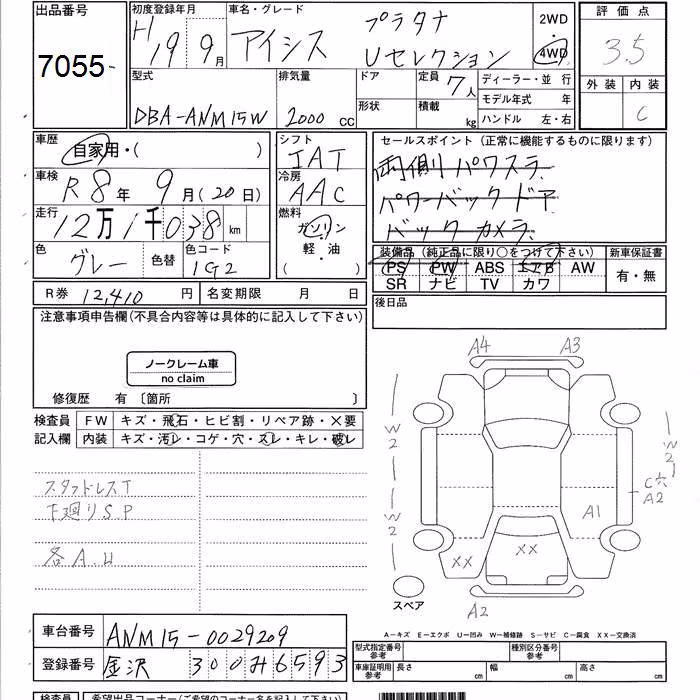 出品番号
7055
初度登録年月
H19 9月
車名・グレード
アイシス プラタナ
Uセレクション
2WD
・
4WD
評価点
3.5
外装 内装
C
型式
DBA-ANM15W
排気量
2000 CC
ドア
形状
定員
7人
積載
kg
ディーラー・並 行
モデル年式 年
ハンドル 左・右
車歴
自家用・( )
シフト
IAT
車検
R8年 9月(20日)
冷房
AAC
走行
12万1千038 km
燃料
ガソリン
軽・油
( )
色
グレー
色替
色コード
1G2
セールスポイント (正常に機能するものに限ります)
両側パワスラ
パワーバックドア
バックカメラ
装備品 (純正品に限り○をつけて下さい)
PS PW ABS エアB AW
SR ナビ TV カワ
新車保証書
有・無
R券 12,410 円
名変期限 月 日
後日品
注意事項申告欄(不具合内容等は具体的に記入して下さい)
ノークレーム車
no claim
修復歴 有 〔箇所 〕
検査員
記入欄
FW キズ・飛石・ヒビ割・リペア跡・×要
内装 キズ・汚レ・コゲ・穴・スレ・キレ・破レ
スタッドレスT
下廻りSP
各A.U
A4 A3
W2
W2
W2
C穴
A2
A1
XX
XX
A2
スペア
A-キズ E-エクボ U-凹み W-補修跡 S-サビ C-腐食 XX-交換済
車台番号 ANM15-0029209
登録番号 金沢 300み6593
型式指定番号
参考
種別区分番号
参考
車庫証明用
参考
長さ cm
幅 cm
高さ cm
検査員
希望出品コーナー(ご希望のコーナー名を記入下さい)